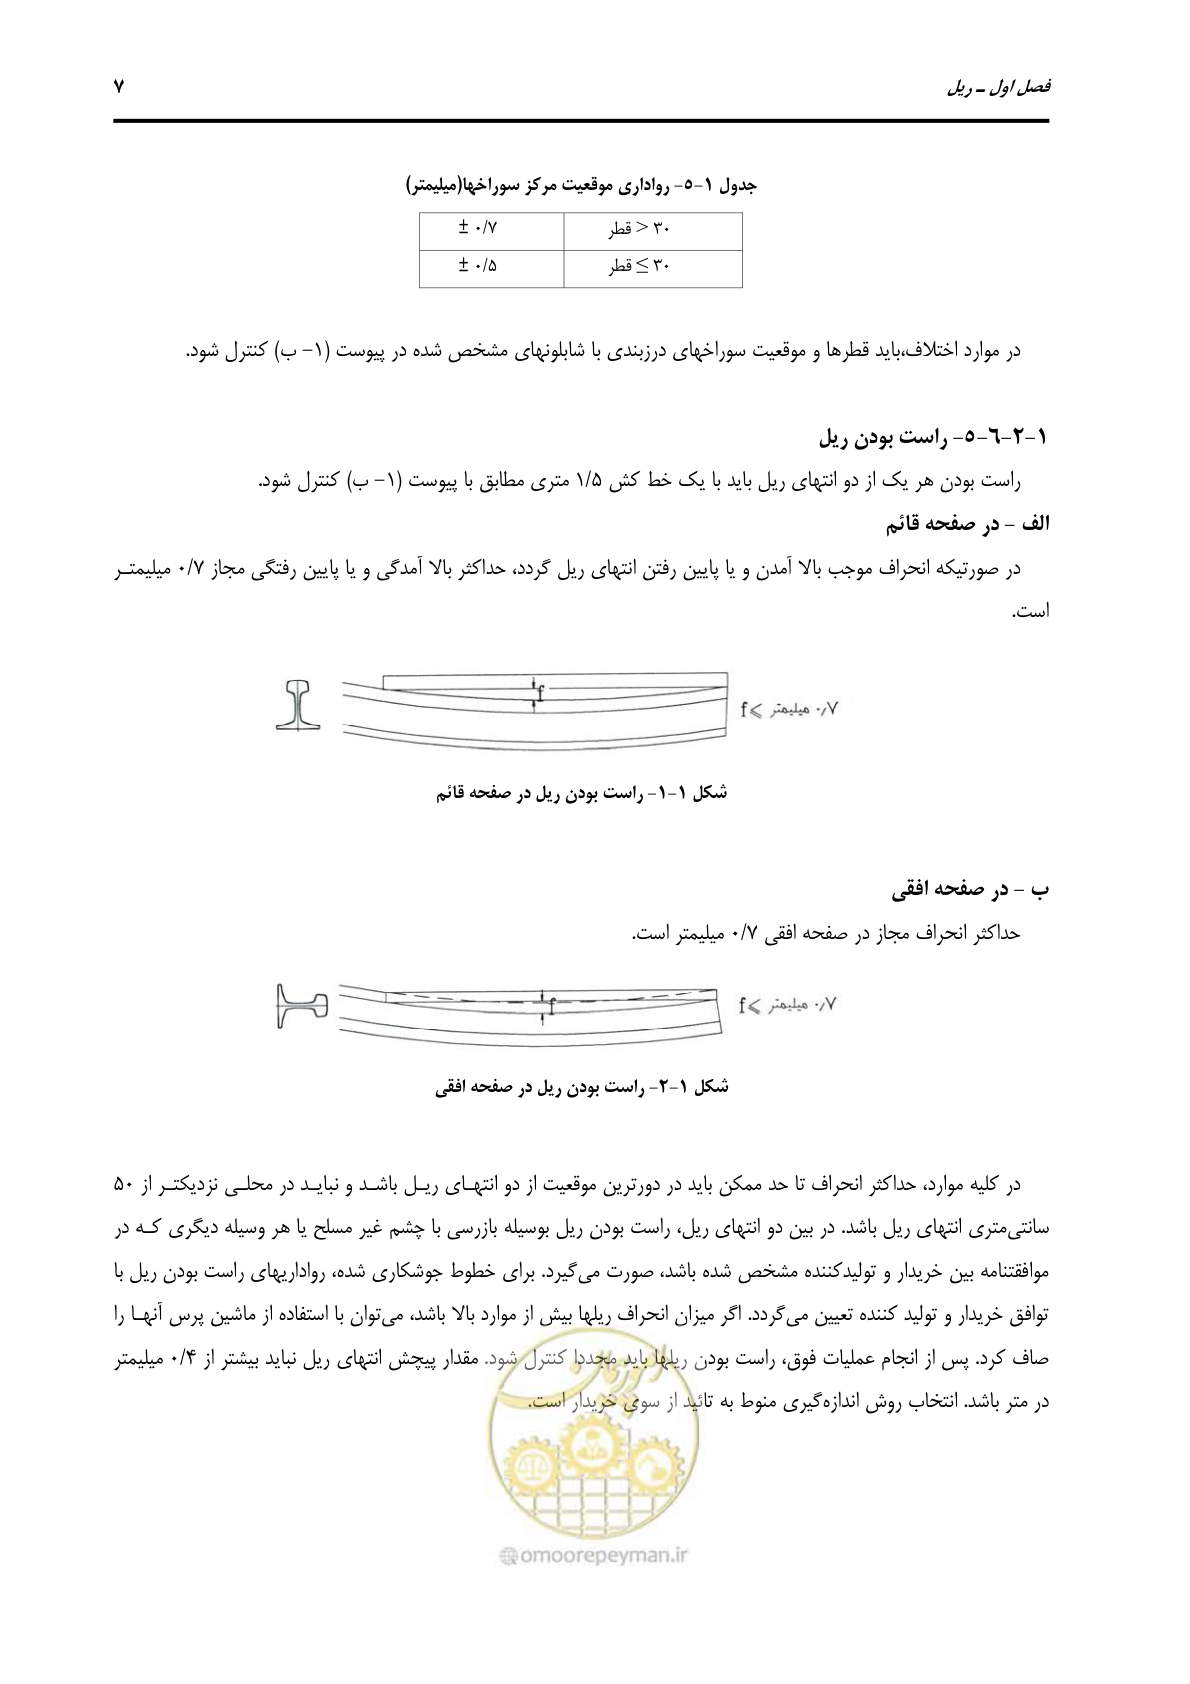 فصل اول ـ ریل
۷
جدول ۱-۵- رواداری موقعیت مرکز سوراخها(میلیمتر)
۳۰ > قطر
± ۰/۷
۳۰ ≥ قطر
± ۰/۵
در موارد اختلاف،باید قطرها و موقعیت سوراخهای درزبندی با شابلونهای مشخص شده در پیوست (۱- ب) کنترل شود.
۱-۲-۶-۵- راست بودن ریل
راست بودن هر یک از دو انتهای ریل باید با یک خط کش ۱/۵ متری مطابق با پیوست (۱- ب) کنترل شود.
الف - در صفحه قائم
در صورتیکه انحراف موجب بالا آمدن و یا پایین رفتن انتهای ریل گردد، حداکثر بالا آمدگی و یا پایین رفتگی مجاز ۰/۷ میلیمتـر
است.
f
f⩽ ۰٫۷ میلیمتر
شکل ۱-۱- راست بودن ریل در صفحه قائم
ب - در صفحه افقی
حداکثر انحراف مجاز در صفحه افقی ۰/۷ میلیمتر است.
f
f⩽ ۰٫۷ میلیمتر
شکل ۱-۲- راست بودن ریل در صفحه افقی
در کلیه موارد، حداکثر انحراف تا حد ممکن باید در دورترین موقعیت از دو انتهـای ریـل باشـد و نبایـد در محلـی نزدیکتـر از ۵۰
سانتی‌متری انتهای ریل باشد. در بین دو انتهای ریل، راست بودن ریل بوسیله بازرسی با چشم غیر مسلح یا هر وسیله دیگری کـه در
موافقتنامه بین خریدار و تولیدکننده مشخص شده باشد، صورت می‌گیرد. برای خطوط جوشکاری شده، رواداریهای راست بودن ریل با
توافق خریدار و تولید کننده تعیین می‌گردد. اگر میزان انحراف ریلها بیش از موارد بالا باشد، می‌توان با استفاده از ماشین پرس آنهـا را
صاف کرد. پس از انجام عملیات فوق، راست بودن ریلها باید مجددا کنترل شود. مقدار پیچش انتهای ریل نباید بیشتر از ۰/۴ میلیمتر
در متر باشد. انتخاب روش اندازه‌گیری منوط به تائید از سوی خریدار است.
امور پیمان
@omoorepeyman.ir